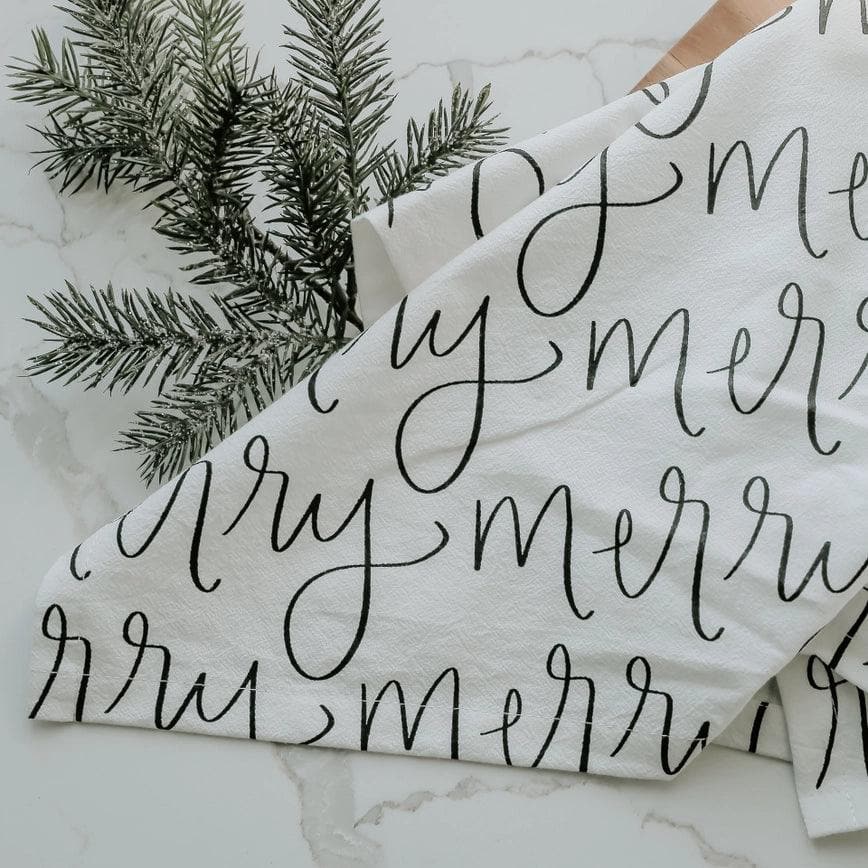 me
y mer
rry merry
rry merry